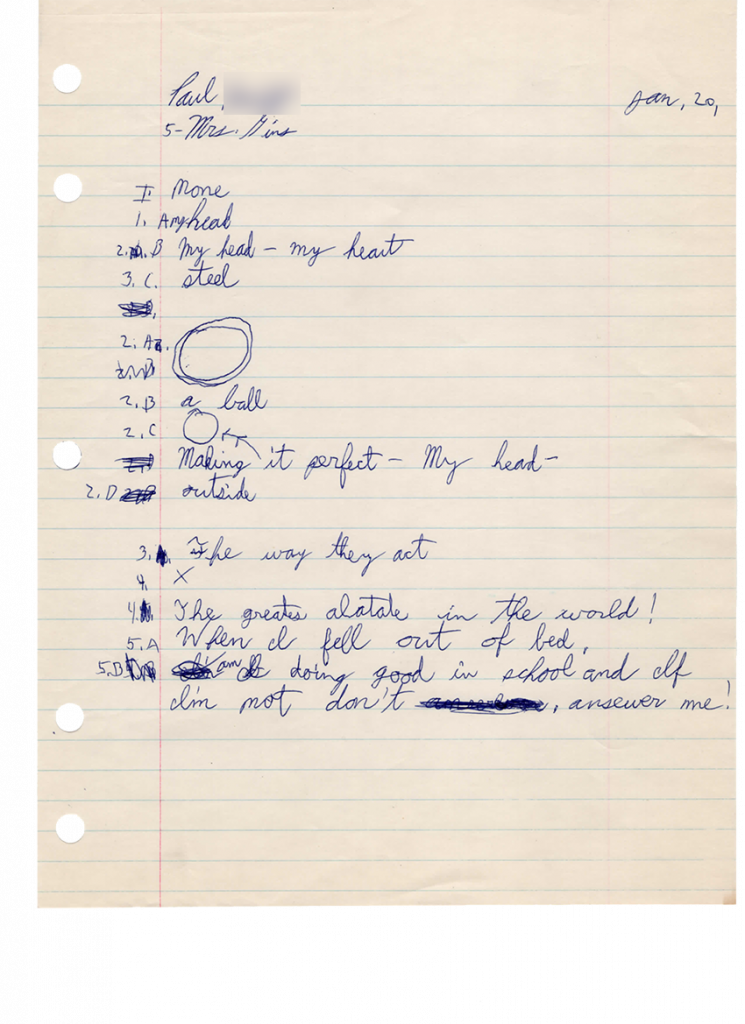 Paul,
Jan, 20,
5-Mrs. Gins
I None
1. A my head
2. B My head - my heart
3. C. steel
2. A.
2. B a ball
2. C
Making it perfect - My head -
2. D outside
3. The way they act
4. X
4. The greates alatate in the world!
5. A When I fell out of bed,
5. B am doing good in school and If
I'm not don't , ansewer me!